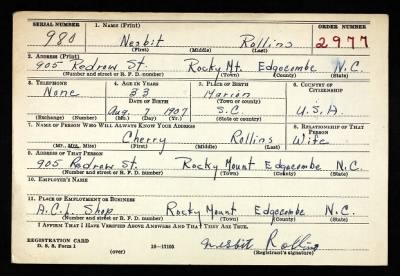 SERIAL NUMBER 1. NAME (Print) ORDER NUMBER
980 Nesbit Rollins 2977
(First) (Middle) (Last)
2. ADDRESS (Print)
905 Redrow St. Rocky Mt. Edgecombe N.C.
(Number and street or R. F. D. number) (Town) (County) (State)
3. TELEPHONE 4. AGE IN YEARS 5. PLACE OF BIRTH 6. COUNTRY OF CITIZENSHIP
None 33 Marion
DATE OF BIRTH (Town or county)
Aug 7 1907 S.C U.S.A.
(Exchange) (Number) (Mo.) (Day) (Yr.) (State or country)
7. NAME OF PERSON WHO WILL ALWAYS KNOW YOUR ADDRESS 8. RELATIONSHIP OF THAT PERSON
Cherry Rollins Wife
(Mr., Mrs., Miss) (First) (Middle) (Last)
9. ADDRESS OF THAT PERSON
905 Redrow St. Rocky Mount Edgecombe N.C.
(Number and street or R. F. D. number) (Town) (County) (State)
10. EMPLOYER'S NAME
11. PLACE OF EMPLOYMENT OR BUSINESS
A.C.L. Shop Rocky Mount Edgecombe N.C.
(Number and street or R. F. D. number) (Town) (County) (State)
I AFFIRM THAT I HAVE VERIFIED ABOVE ANSWERS AND THAT THEY ARE TRUE.
REGISTRATION CARD
D. S. S. Form 1 (over) 16—17105 Nesbit Rollins
(Registrant's signature)